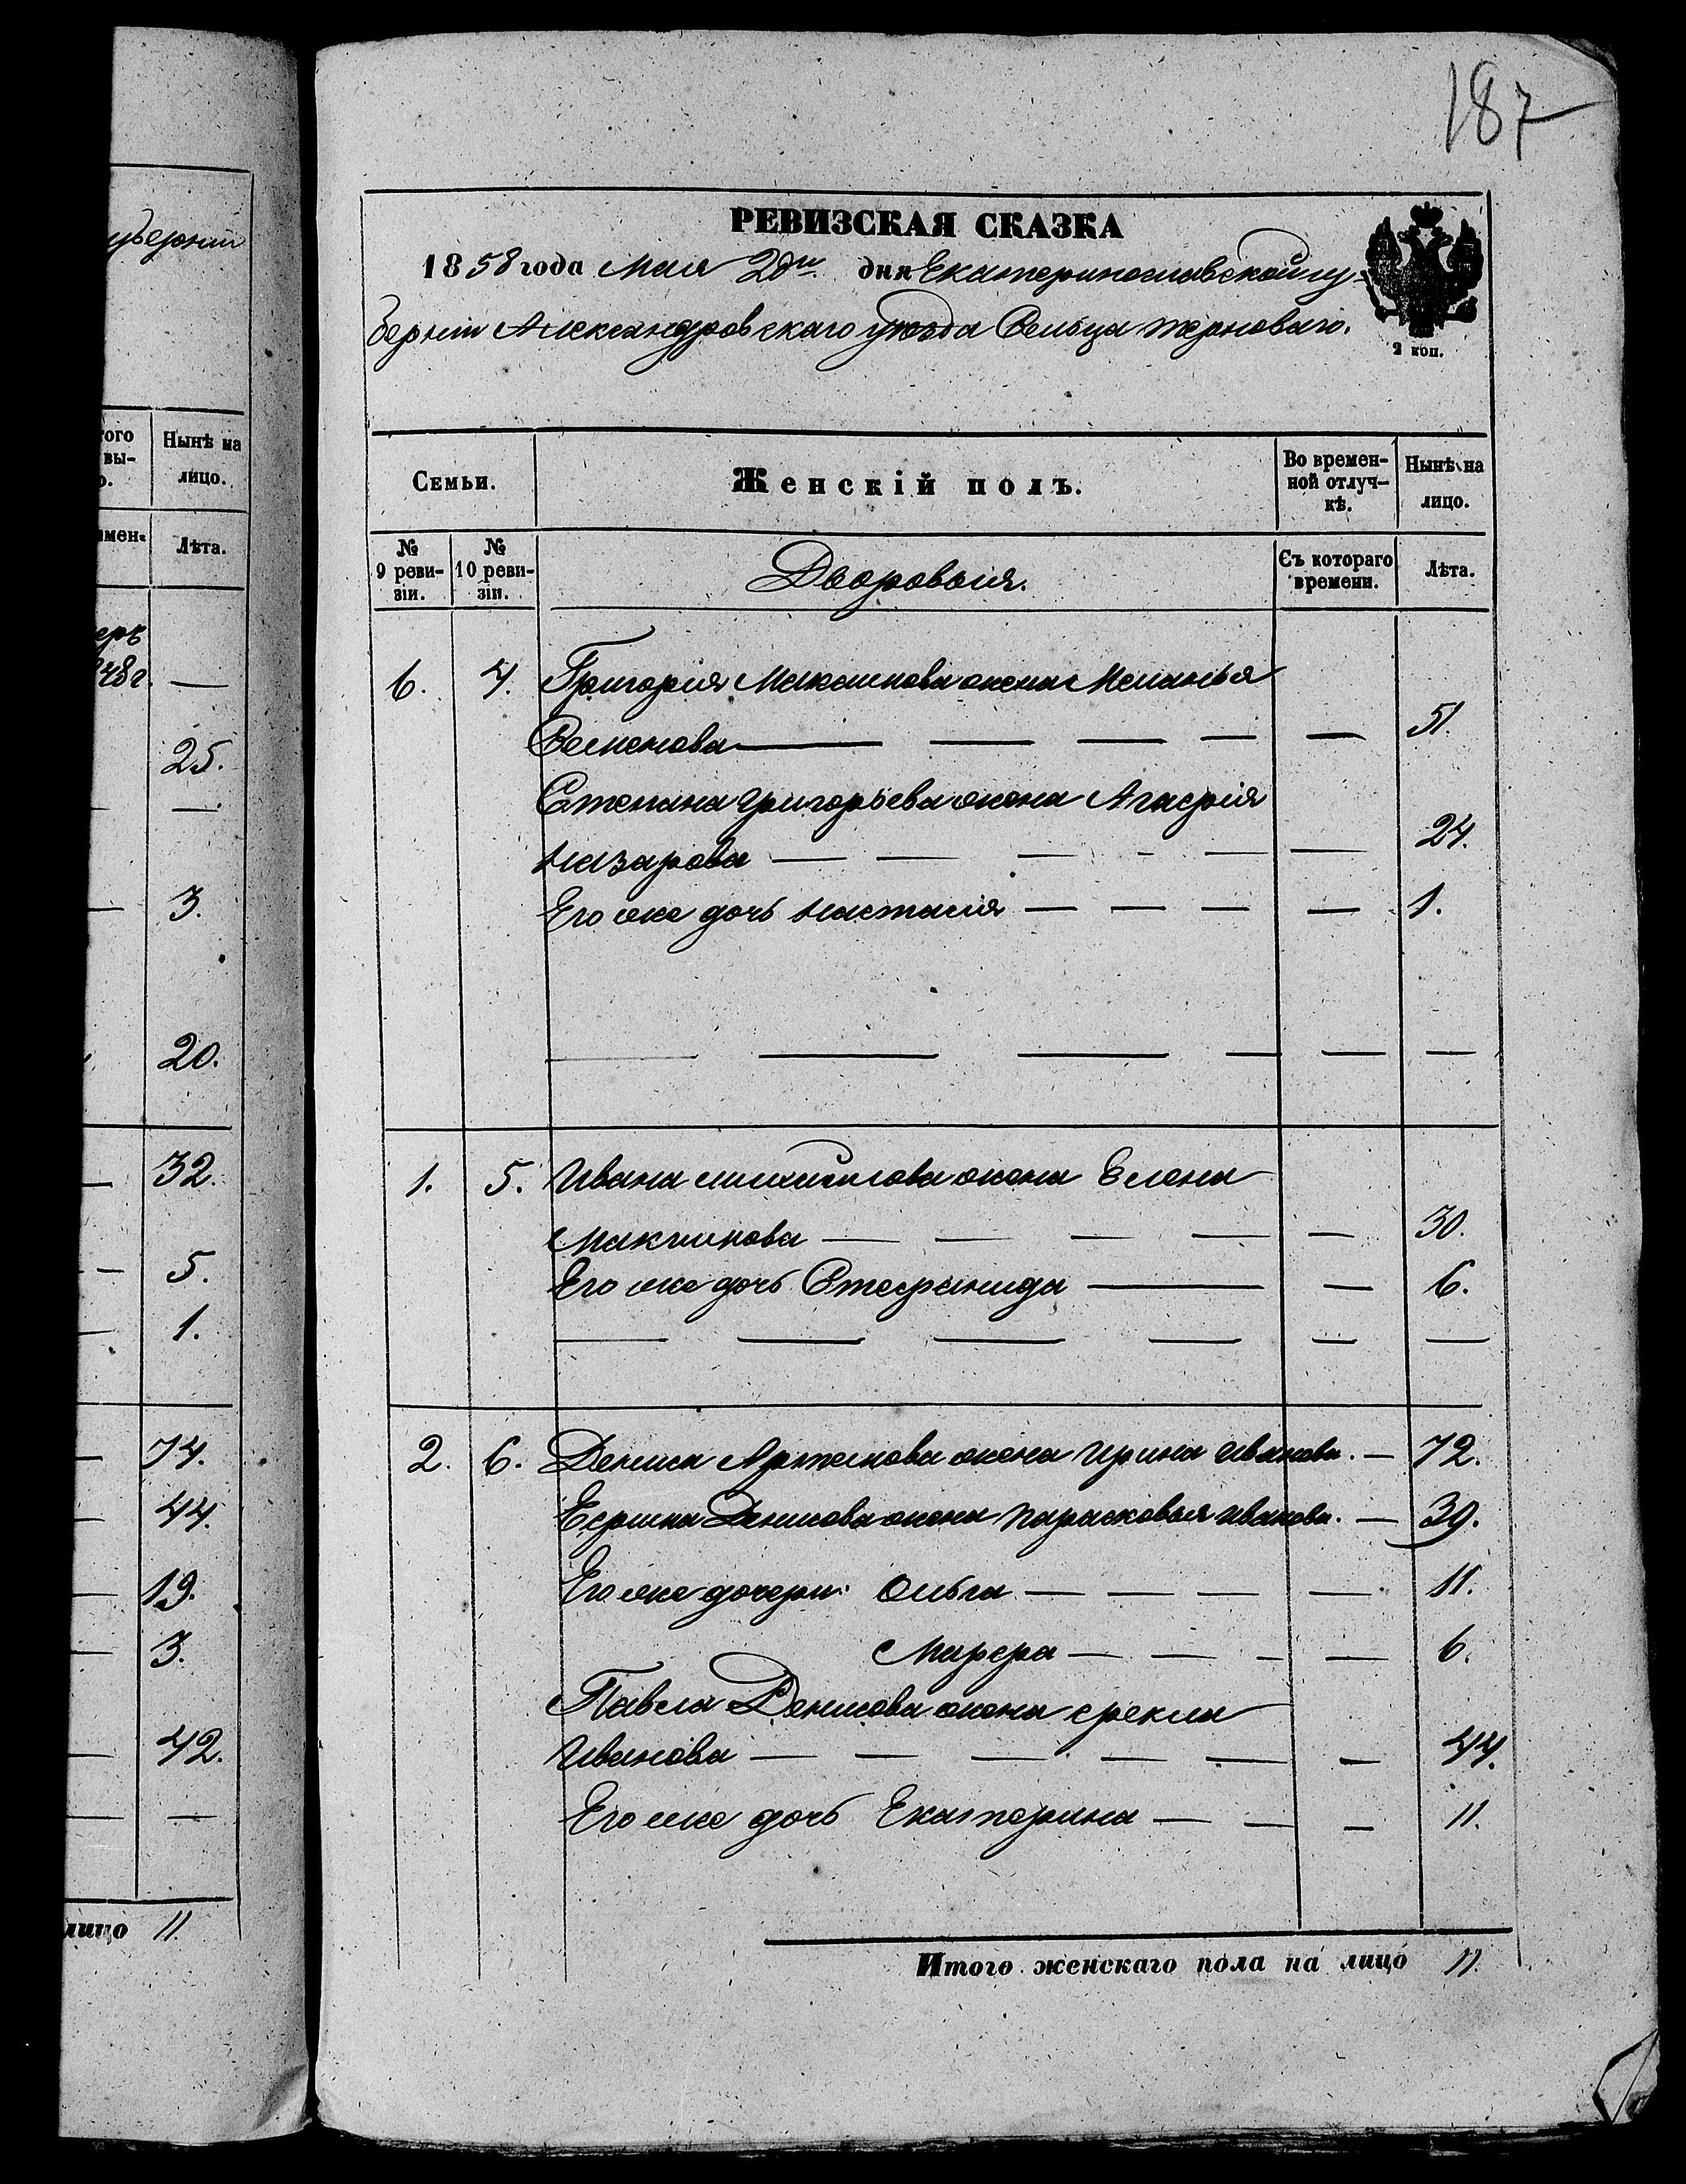 губерніи
того
вы-
о.
Нынѣ на
лицо.
имен.
Лѣта.
848г.
—
25.
—
3.
20.
32.
5.
1.
74.
44.
19.
3.
42.
—
лицо 11
187
РЕВИЗСКАЯ СКАЗКА
1858 года Мая 2го дня Екатеринославской гу-
берніи Александровскаго уѣзда Сельца терноваго.
2 коп.
Семьи.
Женскій полъ.
Во времен-
ной отлуч-
кѣ.
Нынѣ на
лицо.
№
9 реви-
зіи.
№
10 реви-
зіи.
Дворовыя.
Съ котораго
времени.
Лѣта.
6. 4. Григорія Максимова жена Меланья
Семенова — — — — — 51.
Степана Григорьева жена Агафія
Назарова — — — — — — 24.
Его же дочь Настасія — — — — 1.
— — — — — —
1. 5. Ивана михайлова жена Елена
Максимова — — — — — 30.
Его же дочь Стефанида — — 6.
— — — — — —
2. 6. Дениса Артемова жена Ирина Иванова. — 72.
Ефима Денисова жена Парасковья Иванова. — 39.
Его же дочери: Ольга — — — — 11.
Марфа — — — — 6.
Павла Денисова жена Фекла
Иванова — — — — — — 44.
Его же дочь Екатерина — — — 11.
Итого женскаго пола на лицо 11.